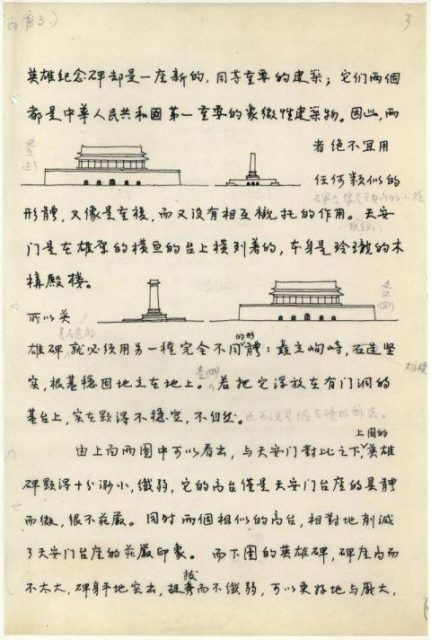 3
英雄纪念碑却是一座新的，同等重要的建築；它们两個
都是中華人民共和國第一重要的象徵性建築物。因此，両
者绝不宜用
任何類似的
形體，又像是重複，而又没有相互襯托的作用。天安
门是在雄厚的横亘的台上横列着的，本身是玲瓏的木
構殿楼。
所以英
雄碑就必须用另一種完全不同的形體：矗立峋峙，石造坚
实，根基穩固地立在地上。若把它浮放在有门洞的
基台上，实在顯得不穩定，不自然。
由上面两图中可以看出，与天安门對比之下，上圖的英雄
碑顯得十分渺小，纖弱，它的高台僅是天安门台座的具體
而微，很不莊嚴。同时两個相似的高台，相對地削減
了天安门台座的莊嚴印象。而下图的英雄碑，碑座高而
不太大，碑身平地突出，挺拔而不纖弱，可以更好地与龐大，